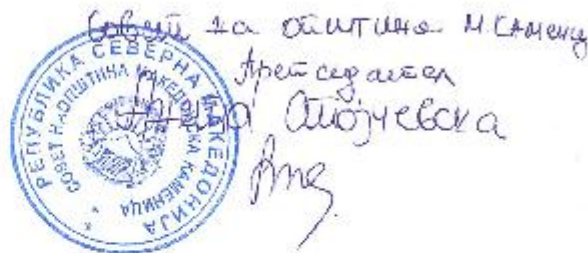 Совет на општина М. Каменица
Претседател
Стојчевска
РЕПУБЛИКА СЕВЕРНА МАКЕДОНИЈА
СОВЕТ НА ОПШТИНА МАКЕДОНСКА КАМЕНИЦА